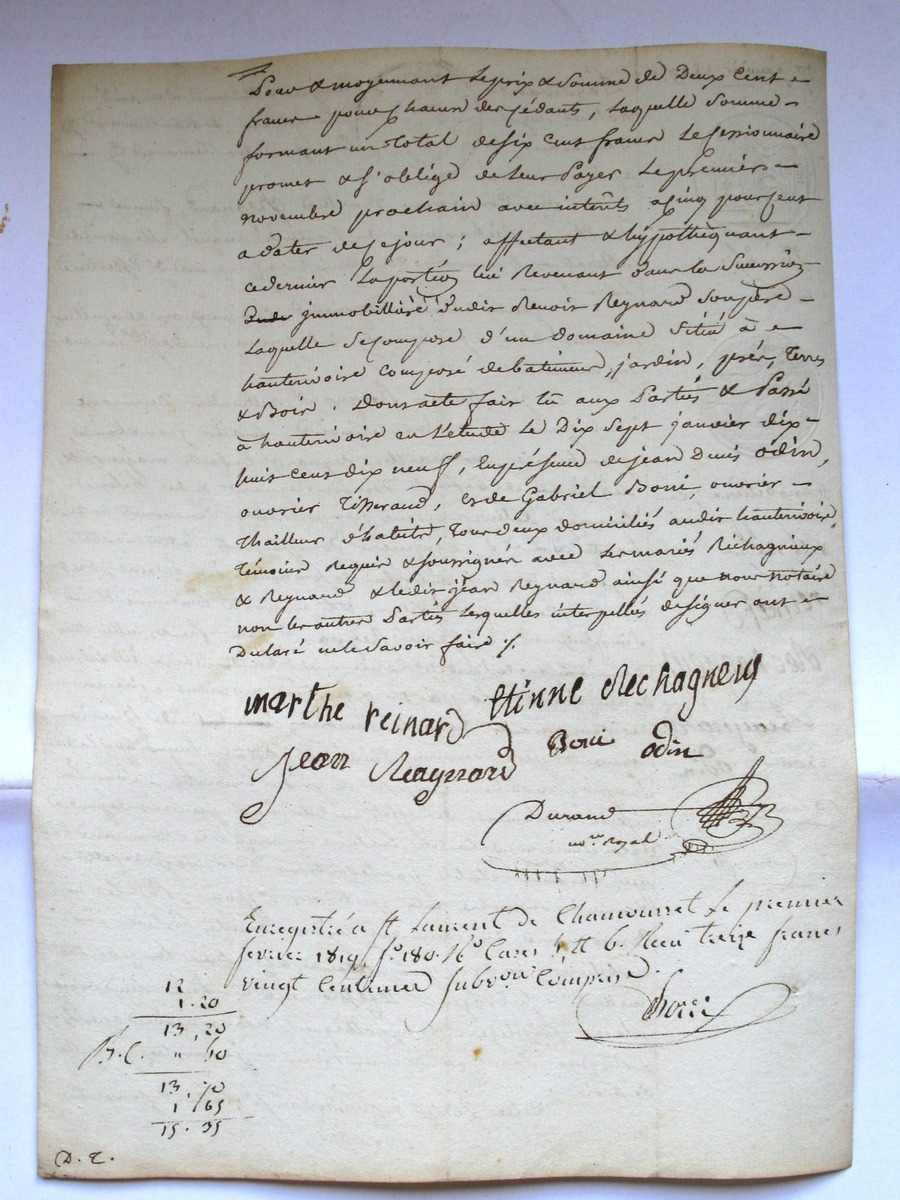 Pour & moyennant le prix & somme de Deux Cent
francs pour chacun des cédants, Laquelle somme
formant un total de six cent francs le cessionnaire
promet & s'oblige de leur Payer le premier
novembre prochain avec intérêts a cinq pour cent
a dater de ce jour ; affectant & hypothéquant
ce dernier La portion lui Revenant dans la Succession
immobilliäre dudit Benoit Reynard son père
Laquelle se compose d'un domaine situé à
hauterivoire composé de batiments, jardin, prés, terres
& Bois. Dont acte fait lû aux Parties & Passé
à hauterivoire en l'etude le Dix Sept janvier dix
huit cent dix neuf, En présence de jean Denis odin,
ouvrier Tisserand, & de Gabriel Boni, ouvrier
thailleur d'habits, Tous deux domiciliés audit hauterivoire,
Témoins Requis & soussignés avec les mariés Réchagnieux
& Reynard & ledit jean Reynard ainsi que nous notaire
non les autres Parties lesquelles interpellés de signer ont
Déclaré ne le savoir faire %.
marthe reinard Etinne Rechagneus
Jean Reaynard Boni odin
Durand
no.re Royal
Enregistré a St Laurent de Chamousset le premier
fevrier 1819, f.o 180. V.o Cases 5, et 6. Reçu treize francs
vingt Centimes Subv.on Comprise.
12
1.20
13,20
B.C. " 50
13,70
1,65
15.35
D. E.